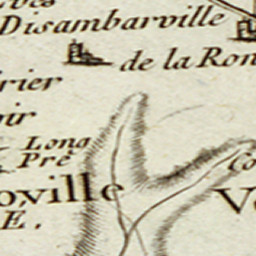 Disambarville
de la Ron
rier
oir
Long
Pré
oville
Co
Ve
E.